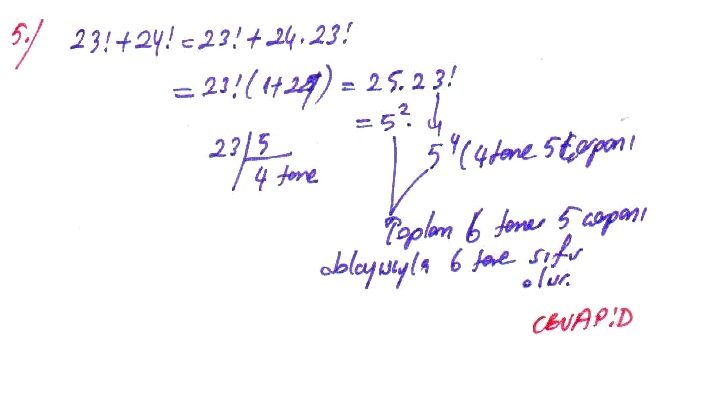 5./ 23!+24! = 23!+24.23!
= 23!(1+24) = 25.23!
= 5².
23 | 5
4 tane
5⁴ (4 tane 5 çarpanı
Toplam 6 tane 5 çarpanı
dolayısıyla 6 tane sıfır
olur.
CEVAP:D